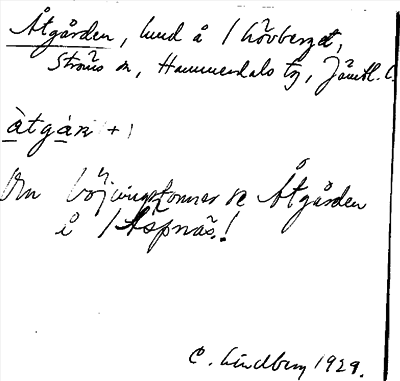 Åtgården, lund å 1 Lövberget,
Ströms sn, Hammerdals tg, Jämtl. l.
àtgáɴ (+)
Om böjningsformer se Åtgården
å 1 Äspnäs!
C. Lindberg 1929.